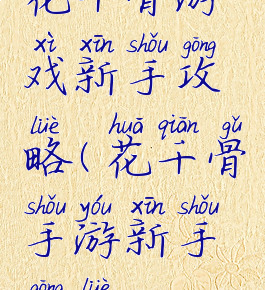 花千骨游
xì xīn shǒu gōng
戏新手攻
lüè huā qiān gǔ
略(花千骨
shǒu yóu xīn shǒu
手游新手
gōng lüè